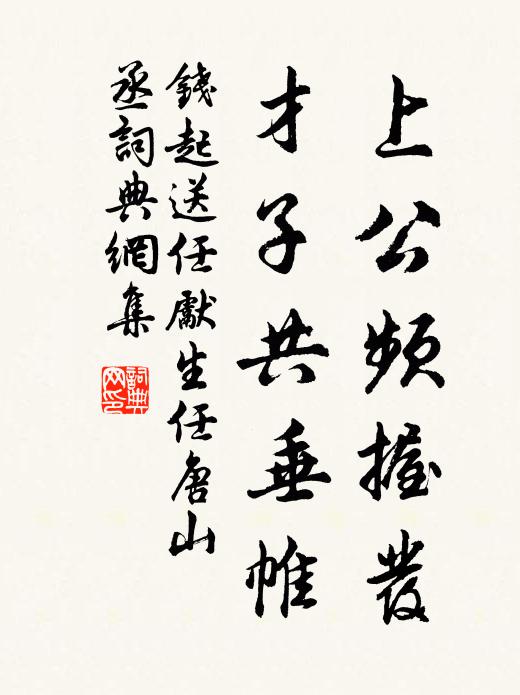 上公頻握髮
才子共垂帷
錢起送任獻生任唐山
丞詞典網集
詞典
网印